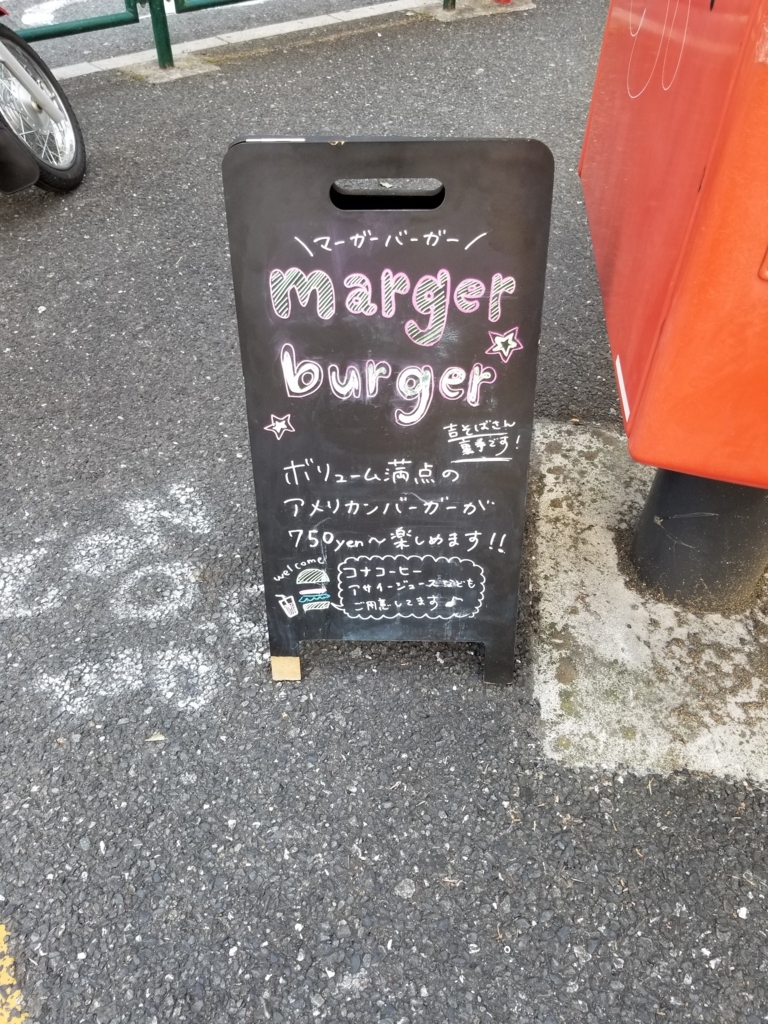 \マーガーバーガー/
marger
burger
吉そばさん
裏手です!
ボリューム満点の
アメリカンバーガーが
750yen〜楽しめます!!
welcome
コナコーヒー
アサイージュースなども
ご用意してます♪